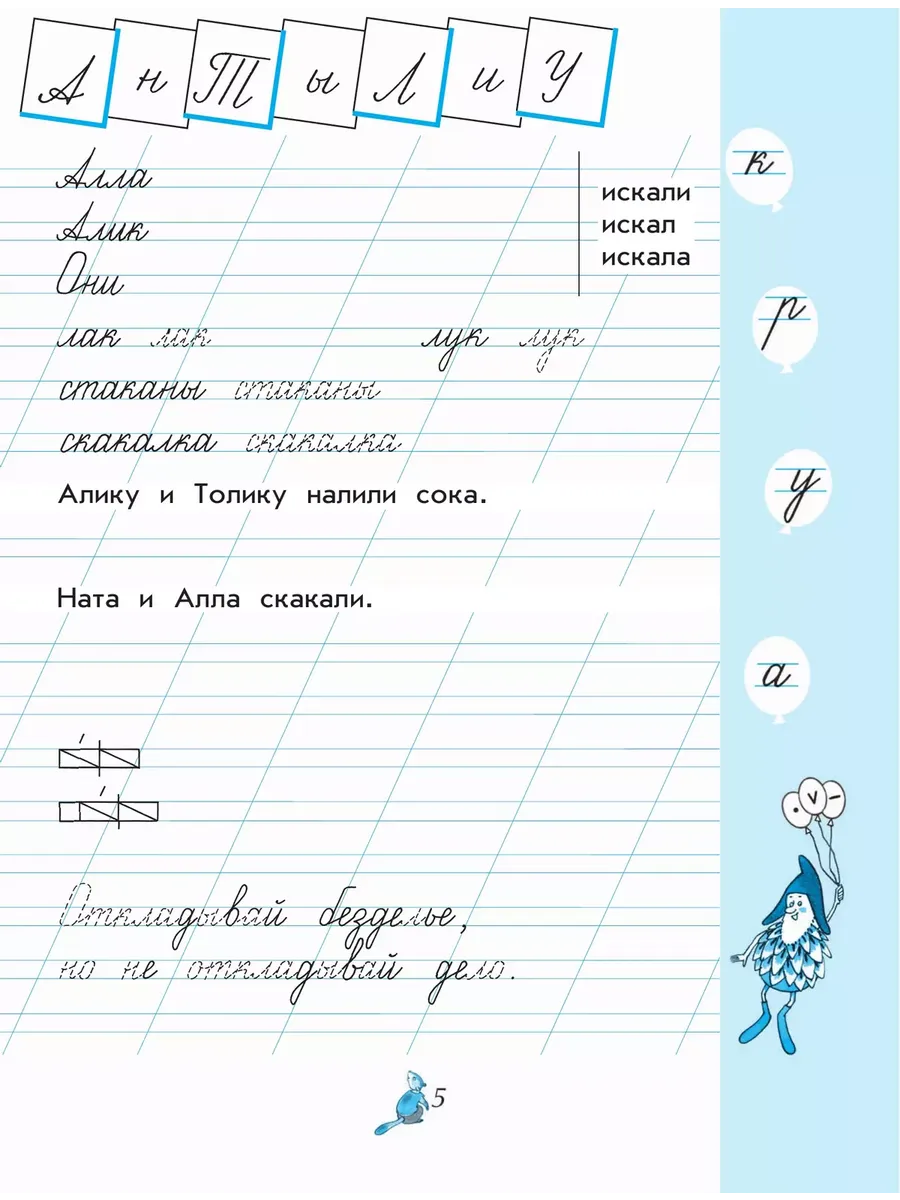 А н Т ы Л и У
Алла
искали
Алик
искал
Они
искала
лак лак лук лук
стаканы стаканы
скакалка скакалка
Алику и Толику налили сока.
Ната и Алла скакали.
Откладывай безделье,
но не откладывай дело.
5
к
р
у
а